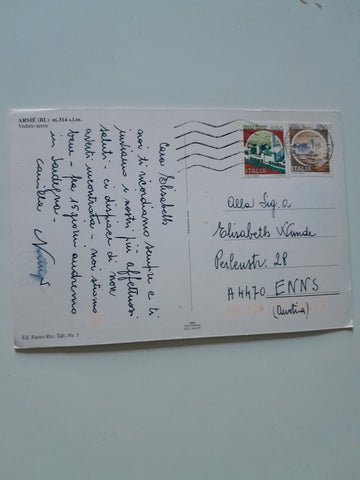 ARSIÉ (BL) m.314 s.l.m.
Vedute aeree
Cara Elisabeth
noi ti ricordiamo sempre e ti
inviamo i nostri più affettuosi
saluti - ci dispiace di non
averti incontrata - noi stiamo
bene - fra 15 giorni andremo
in Sardegna -
Camilla
Ed. Fuoro Riv. Tab. Nr. 1
ITALIA
ITALIA
Alla Sig.a
Elisabeth Wunde
Perlenstr. 28
A4470 ENNS
(Austria)